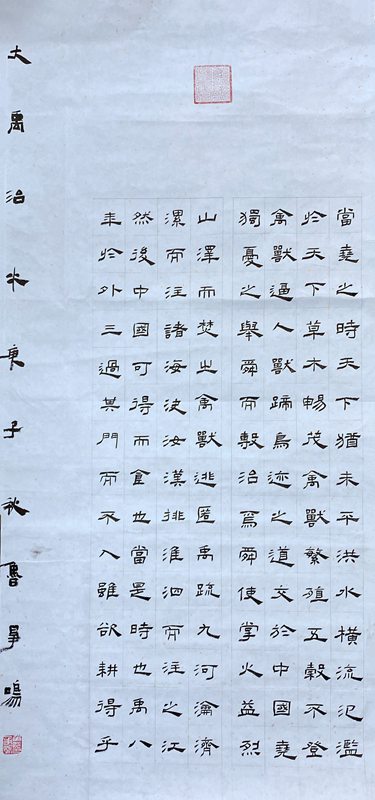 當堯之時天下猶未平洪水橫流氾濫
於天下草木暢茂禽獸繁殖五穀不登
禽獸逼人獸蹄鳥迹之道交於中國堯
獨憂之舉舜而敷治焉舜使掌火益烈
山澤而焚之禽獸逃匿禹疏九河瀹濟
漯而注諸海決汝漢排淮泗而注之江
然後中國可得而食也當是時也禹八
年於外三過其門而不入雖欲耕得乎
大禹治水庚子秋魯